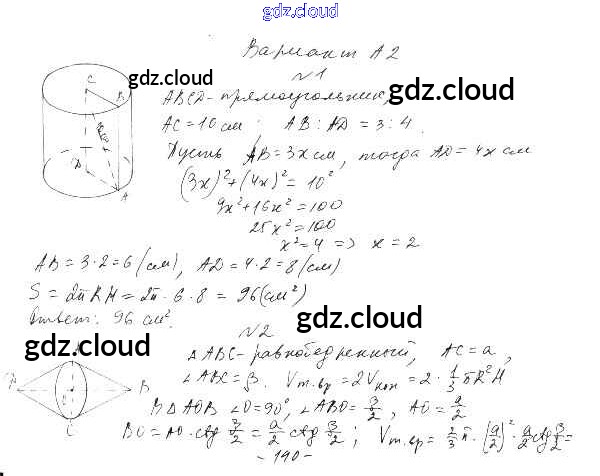 gdz.cloud
Вариант А2
gdz.cloud
№1
ABCD - прямоугольник, gdz.cloud
AC = 10 см ; AB : AD = 3 : 4.
Пусть AB = 3x см, тогда AD = 4x см
(3x)² + (4x)² = 10²
9x² + 16x² = 100
25x² = 100
x² = 4 => x = 2
C
B
D
A
AB = 3·2 = 6 (см), AD = 4·2 = 8 (см)
S = 2πRH = 2π · 6 · 8 = 96 (см²)
Ответ: 96 см². gdz.cloud
№2
gdz.cloud
△ABC - равнобедренный, AC = a,
∠ABC = β. Vт.вр = 2Vкон = 2 · 1/3 πR²H
A
B
C
В △AOB ∠O = 90°, ∠ABO = β/2, AO = a/2
BO = AO · ctg β/2 = a/2 ctg β/2 ; Vт.вр = 2/3 π · (a/2)² · a/2 ctg β/2 =
- 190 -
gdz.cloud